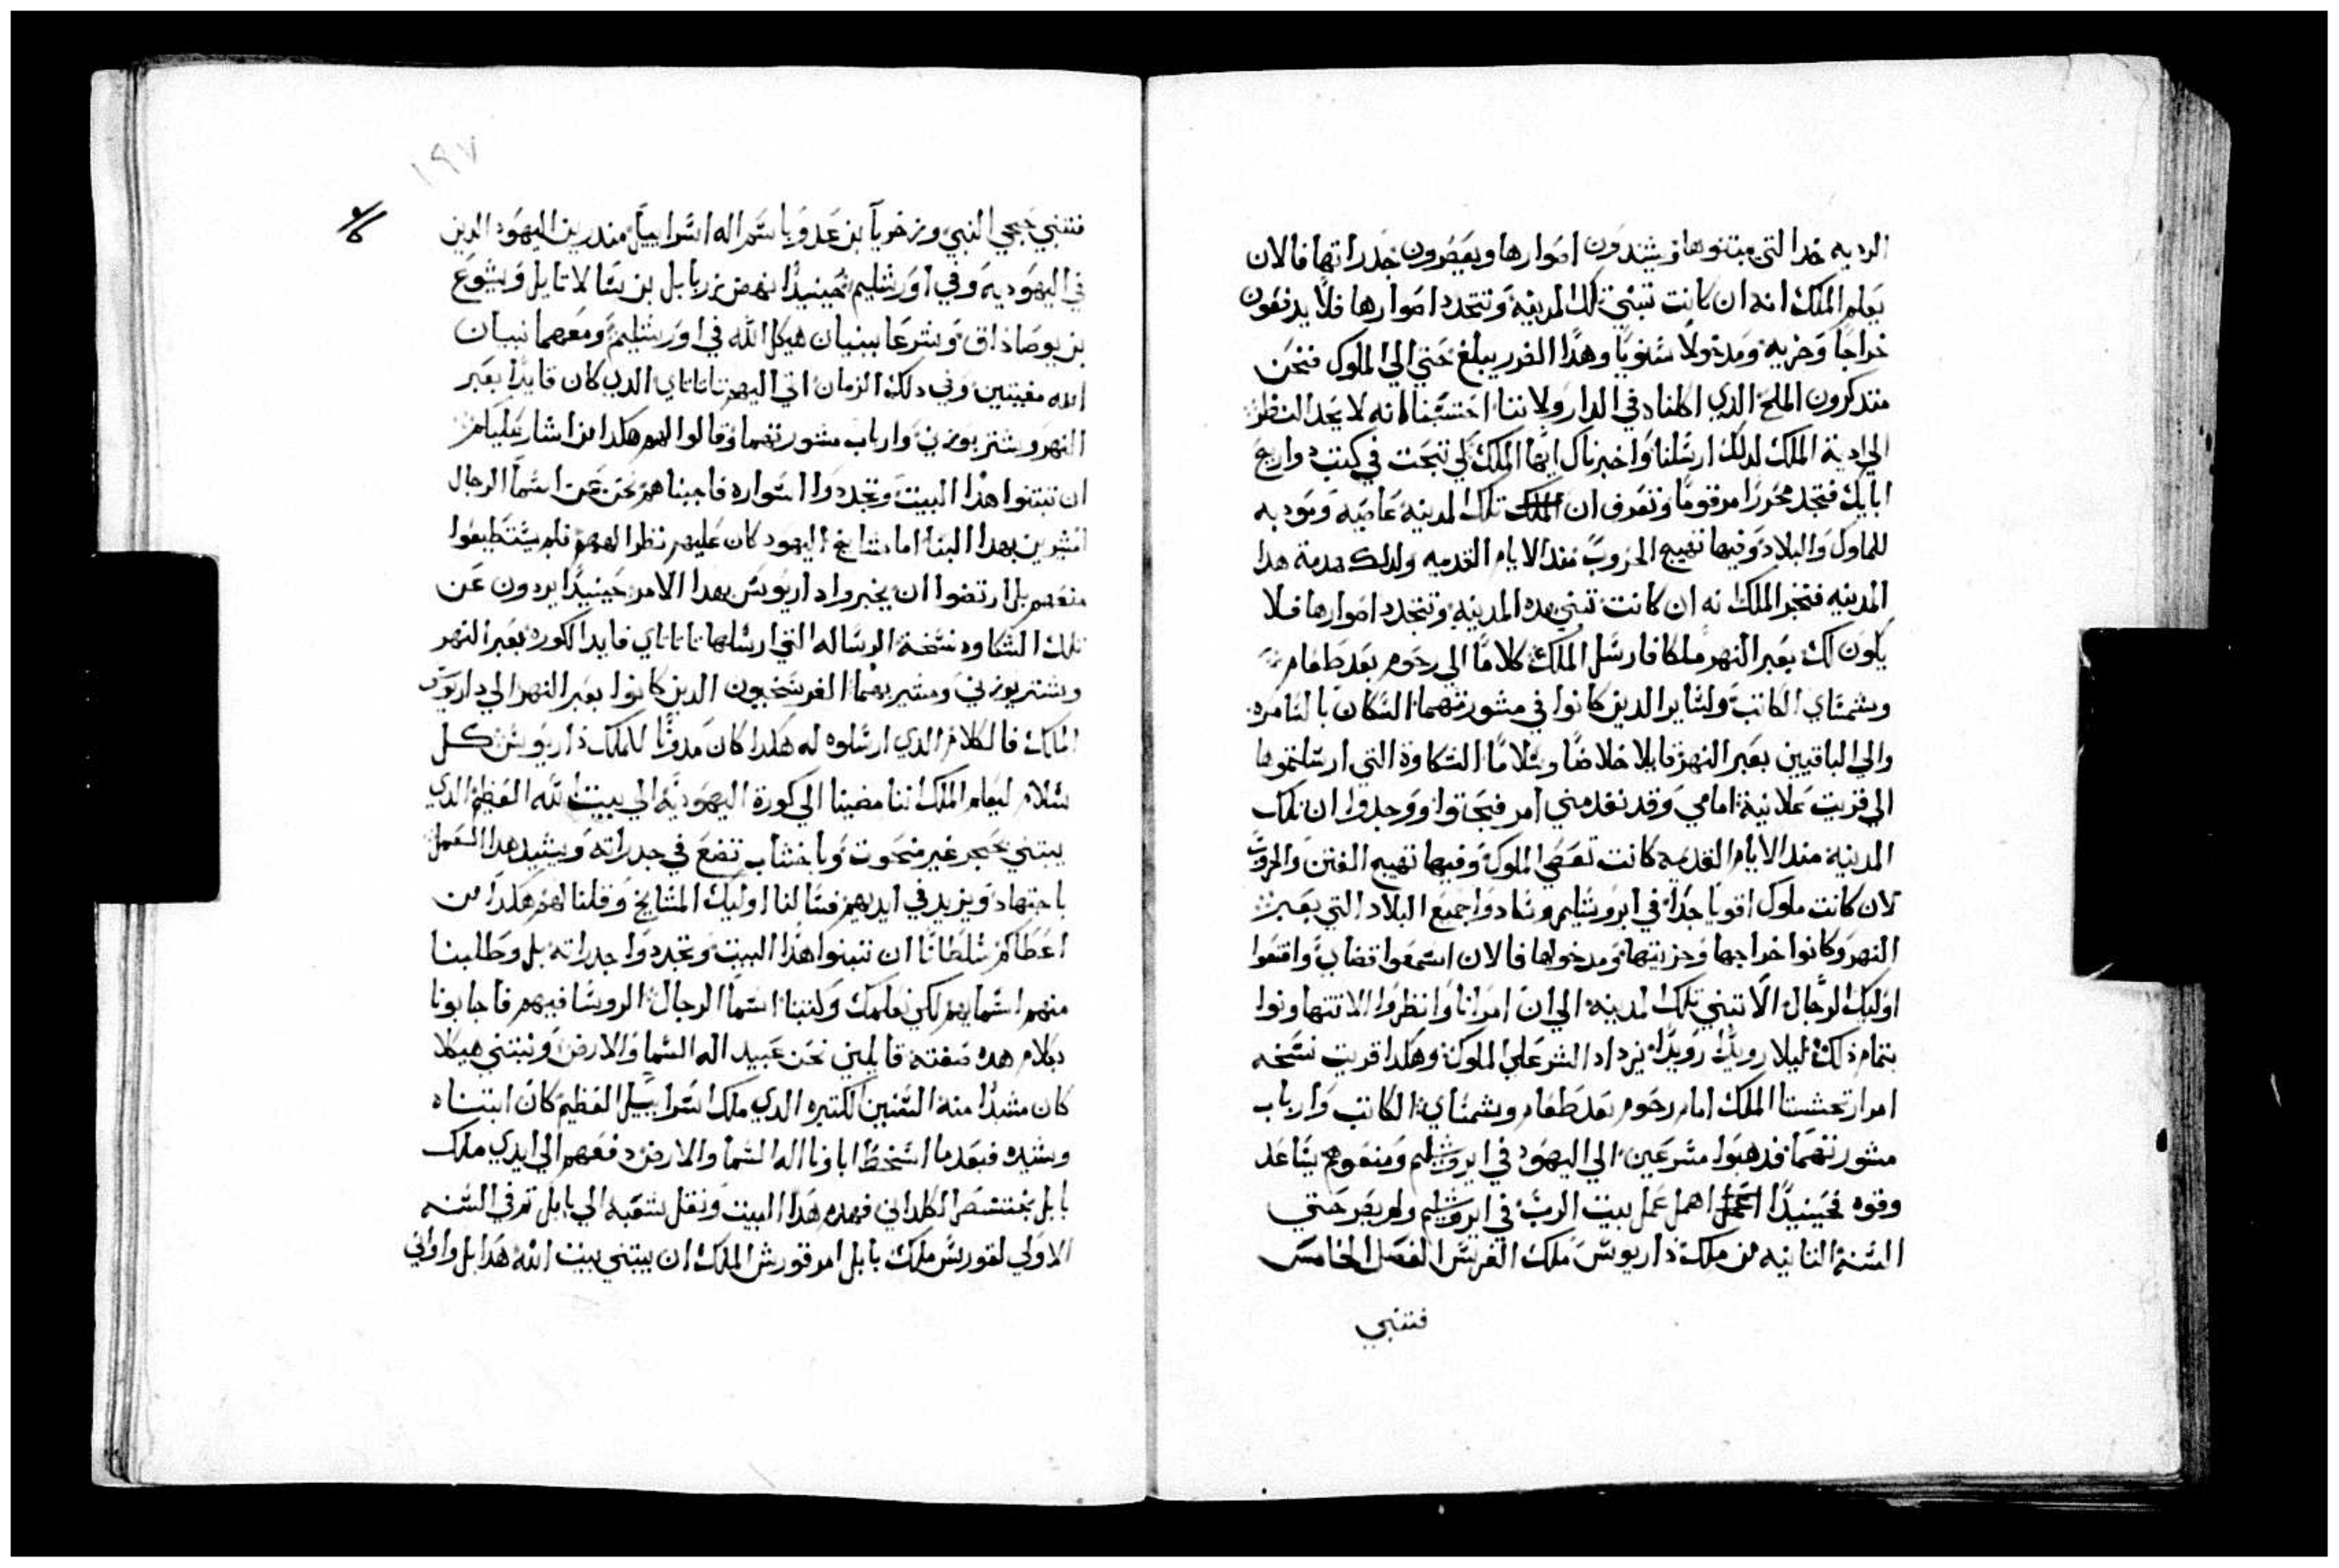 الرديه جدا التي يبتنوها فيشيدون اصوارها ويعمرون جدراتها فالان
يعلم الملك انه ان كانت تبتني تلك المدينه وتتجدد اصوارها فلا يدفعون
خراجا وجزيه ومدخولا سنويا وهدا الضرر يبلغ حتي الي الملوك فنحن
متدكرون الملح الدي اكلناه في الدار ولاننا احتسبنا انه لا يحد النظر
الي ادية الملك لدلك ارسلنا واخبرناك ايها الملك لكي تبحت في كتب تواريخ
ابايك فتجد محررا مرقوما وتعرف ان تلك المدينه عاصيه وموديه
للملوك والبلاد وفيها تهيج الحروب مند الايام القديمه ولدلك هدمة هدا
المدينه فنخبر الملك انه ان كانت تبتني هده المدينه وتتجدد اصوارها فلا
يكون لك بعبر النهر ملكا فارسل الملك كلاما الي رحوم بعد طعام
وشمساي الكاتب ولساير الدين كانوا في مشورتهما السكان بالسامره
والي الباقيين بعبر النهر قايلا خلاصا وسلاما الشكاوة التي ارسلتموها
الي قريت علانية امامي وقد نفد مني امر فبحتوا ووجدوا ان تلك
المدينة مند الايام القديمه كانت تعصي الملوك وفيها تهيج الفتن والحروب
لان كانت ملوك اقويا جدا في ايروشليم وسادوا جميع البلاد التي بعبر
النهر وكانوا خراجها وجزيتها ومدخولها فالان اسمعوا قضاي واقنعوا
اوليك الرجال الا تبتني تلك المدينه الي ان امر انا وانظروا الا تتهاونوا
بتمام ذلك ليلا رويدا رويدا يزداد الشر علي الملوك وهكدا قريت نسخه
امر ارتحشستا الملك امام رحوم بعد طعام وشمساي الكاتب وارباب
مشورتهما فدهبوا مسرعين الي اليهود في ايروشليم ومنعوهم بساعد
وقوه فحينيدا اهمل عمل بيت الرب في ايروشليم ولم يصر حتي
السنة التانيه من ملك داريوس ملك الفرس الفصل الخامس
فتنبي
١٩٧
فتنبي حجي النبي وزخريا بن عدو باسم اله اسراييل مندرين اليهود الدين
في اليهوديه وفي اورشليم حينيدا نهض زربابل بن سالاتايل ويشوع
بن يوصاذاق وشرعا ببنيان هيكل الله في اورشليم ومعهما نبيان
الله مغيتين وفي دلك الزمان اتي اليهم تاتاناي الدي كان قايدا بعبر
النهر وشتر بوزني وارباب مشورتهما وقالوا لهم هكدا من اشار عليكم
ان تبتنوا هذا البيت وتجددوا اسواره فاجبناهم نحن عن اسما الرجال
المشيرين بهدا البنا اما مشايخ اليهود كان عليهم نظر الههم فلم يستطيعوا
منعهم بل ارتضوا ان يخبروا داريوس بهدا الامر حينيدا يردون عن
تلك الشكاوه نسخة الرساله التي ارسلها تاتاناي قايد الكورة بعبر النهر
وشتر بوزني ومشيريهما الفرسخيون الدين كانوا بعبر النهر الي داريوس
الملك فالكلام الذي ارسلوه له هكدا كان مدونا للملك داريوش كل
سلام ليعلم الملك اننا مضينا الي كورة اليهوديه الي بيت الله العظيم الدي
يبتني بحجر غير منحوت وباخشاب تضع في جدراته ويشيد هدا العمل
باجتهاد ويزيد في ايديهم فسالنا اوليك المشايخ وقلنا لهم هكدا من
اعطاكم سلطانا ان تبتنوا هذا البيت وتجددوا جدراته بل وطلبنا
منهم اسمايهم لكي نعلمك وكتبنا اسما الرجال الروسا فيهم فاجابونا
بكلام هده صفته قايلين نحن عبيد اله السما والارض ونبتني هيكلا
كان مشيدا منه السنين الكتيره الدي ملك اسراييل العظيم كان ابتناه
وشيده فبعدما اسخط اباونا اله السما والارض دفعهم الي ايدي ملك
بابل بختنصر الكلداني فهدم هدا البيت ونقل شعبه الي بابل تم في السنه
الاولي لقورس ملك بابل امر قورش الملك ان يبتني بيت الله هدا بل واواني